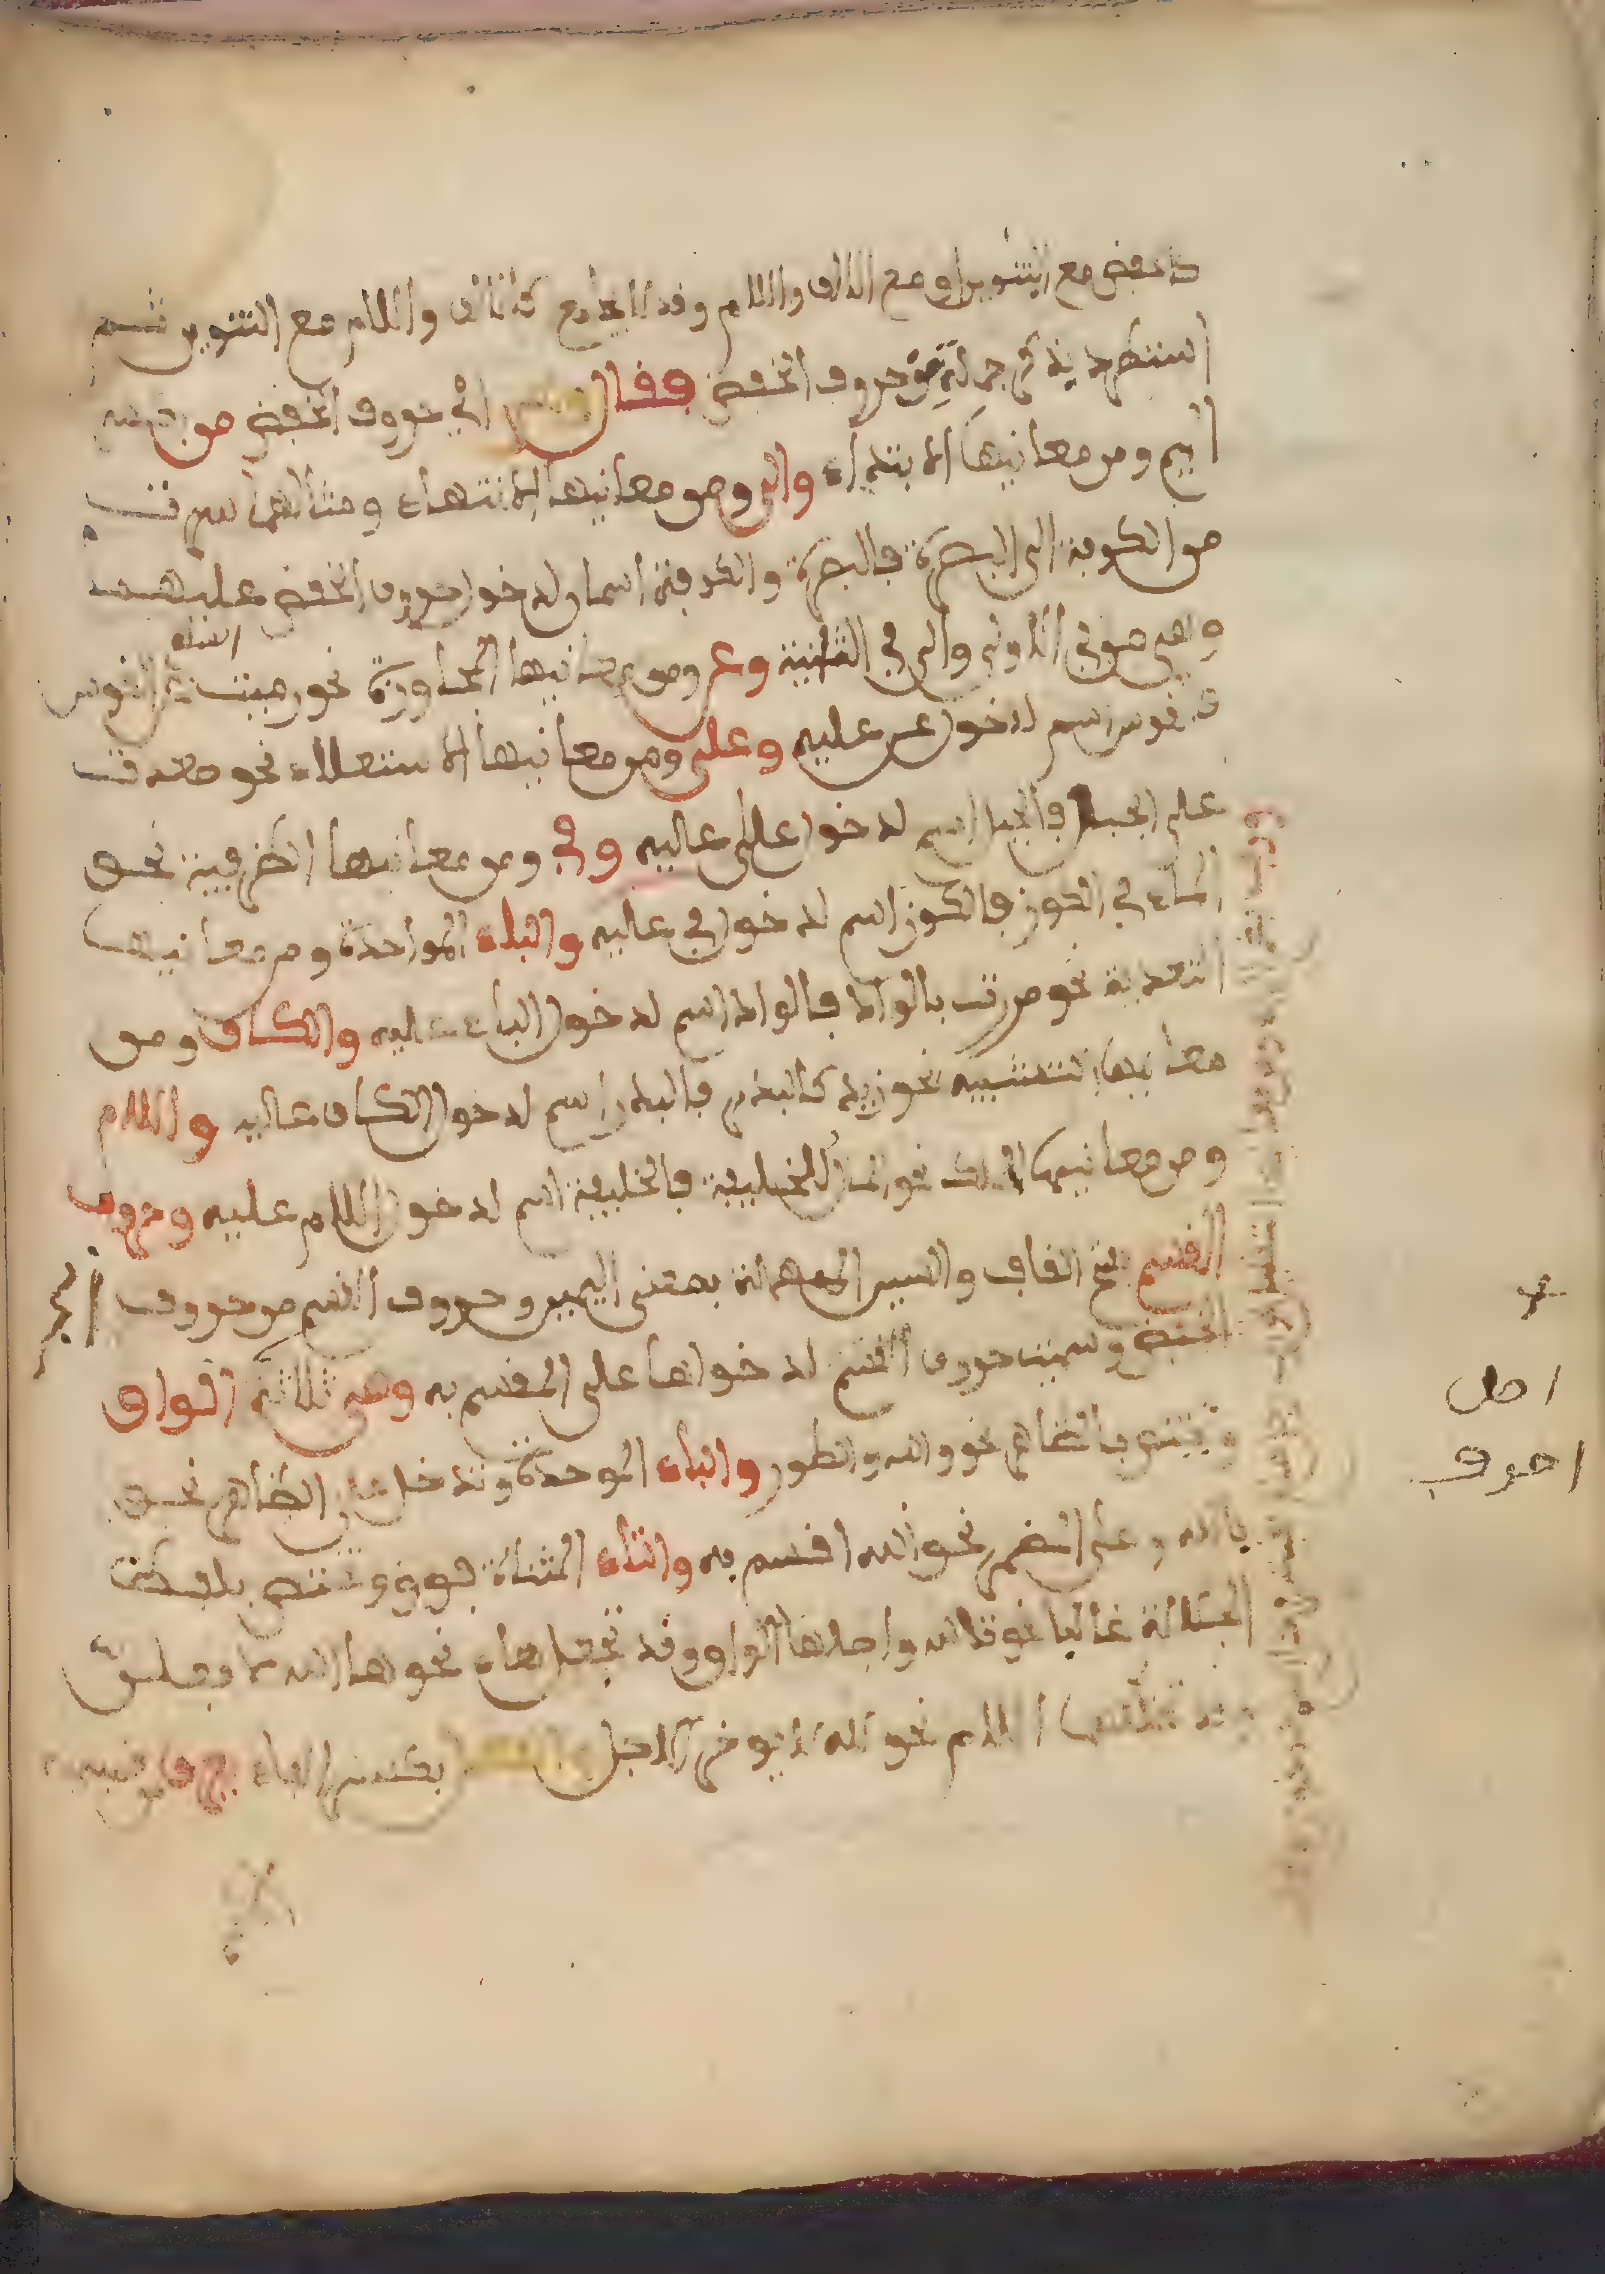 كالخفض مع التنوين او مع الالف واللام وقد لا يجامع كالالف واللام مع التنوين ثم
استطرد بذكر جملة من حروف الخفض فقال وهي اي حروف الخفض من بكسر
الميم ومن معانيها الابتداء والى ومن معانيها الانتهاء ومثالهما سرت
من الكوفة الى البصرة فالبصرة والكوفة اسمان لدخول حروف الخفض عليهما
وهي من في الاولى والى في الثانية وعن ومن معانيها المجاوزة نحو رميت السهم عن القوس
فالقوس اسم لدخول عن عليه وعلى ومن معانيها الاستعلاء نحو صعدت
على الجبل فالجبل اسم لدخول على عليه وفي ومن معانيها الظرفية نحو
الماء في الكوز فالكوز اسم لدخول في عليه والباء الموحدة ومن معانيها
التعدية نحو مررت بالوالد فالوالد اسم لدخول الباء عليه والكاف ومن
معانيها التشبيه نحو زيد كالبدر فالبدر اسم لدخول الكاف عليه واللام
ومن معانيها الملك نحو المال للخليفة فالخليفة اسم لدخول اللام عليه وحروف
القسم بفتح القاف والسين المهملة بمعنى اليمين وحروف القسم من حروف
الخفض وسميت حروف القسم لدخولها على المقسم به وهي ثلاثة الواو
وتختص بالظاهر نحو والله والطور والباء الموحدة وتدخل على الظاهر نحو
بالله وعلى المضمر نحو الله اقسم به والتاء المثناة فوق وتختص بلفظ
الجلالة غالبا نحو تالله واصلها الواو وقد تجعل هاء نحو ها الله لافعلن
وقد تخلفها اللام نحو لله لا يؤخر الاجل والفعل بكسر الفاء يعرف
اصل
احرف